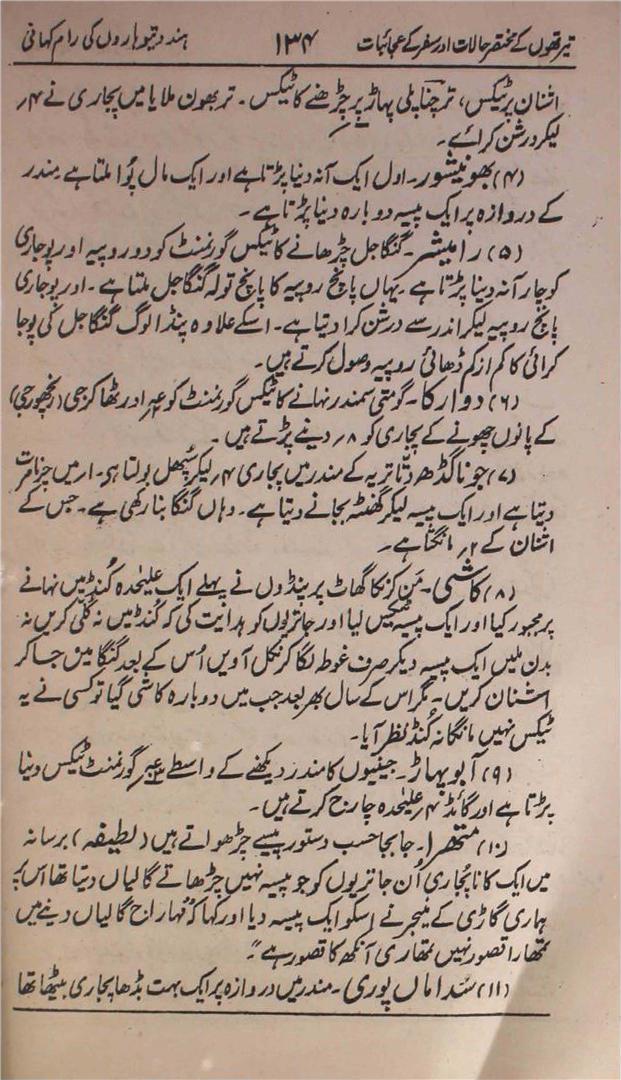 تیرتھوں کے مختصر حالات اور سفر کے عجائبات ۱۳۴ ہندو تیوہاروں کی رام کہانی
اشنان پر ٹیکس، ترچناپلی پہاڑ پر چڑھنے کا ٹیکس۔ تربھون ملایا میں پجاری نے ۴؍
لیکر درشن کرائے۔
(۴) بھونیشور۔ اول ایک آنہ دینا پڑتا ہے اور ایک مال پُوا ملتا ہے مندر
کے دروازہ پر ایک پیسہ دوبارہ دینا پڑتا ہے۔
(۵) رامیشر۔ گنگا جل چڑھانے کا ٹیکس گورنمنٹ کو دو روپیہ اور پوجاری
کو چار آنہ دینا پڑتا ہے۔ یہاں پانچ روپیہ کا پانچ تولہ گنگا جل ملتا ہے۔ اور پوجاری
پانچ روپیہ لیکر اندر سے درشن کرا دیتا ہے۔ اسکے علاوہ پنڈا لوگ گنگا جل کی پوجا
کرائی کا کم از کم ڈھائی روپیہ وصول کرتے ہیں۔
(۶) دوارکا۔ گومتی سمندر نہانے کا ٹیکس گورنمنٹ کو اور ٹھاکر جی (رنچھور جی)
کے پانوں چھونے کے پجاری کو ۸؍ دینے پڑتے ہیں۔
(۷) جوناگڈھ دتا تریہ کے مندر میں پجاری ۴؍ لیکر سُپھل بولتا ہی۔ ۱؍ میں
دیتا ہے اور ایک پیسہ لیکر گھنٹہ بجانے دیتا ہے۔ وہاں گنگا بنا رکھی ہے۔ جس کے
اشنان کے ۲؍ مانگتا ہے۔
(۸) کاشی۔ من کرنکا گھاٹ پر پنڈوں نے پہلے ایک علیحدہ کُنڈ میں نہانے
پر مجبور کیا اور ایک پیسہ ٹیکس لیا اور جاتریوں کو ہدایت کی کہ کُنڈ میں نہ کُلّی کریں نہ
بدن ملیں ایک پیسہ دیکر صرف غوطہ لگا کر نکل آویں اُس کے بعد گنگا میں جا کر
اشنان کریں۔ مگر اس کے سال بھر بعد جب میں دوبارہ کاشی گیا تو کسی نے یہ
ٹیکس نہیں مانگا نہ کُنڈ نظر آیا۔
(۹) آبو پہاڑ۔ جینیوں کا مندر دیکھنے کے واسطے گورنمنٹ ٹیکس دینا
پڑتا ہے اور گائڈ ۴؍ علیحدہ چارج کرتے ہیں۔
(۱۰) متھرا۔ جا بجا حسب دستور پیسے چڑھواتے ہیں (لطیفہ) برسانہ
میں ایک کانا پُجاری اُن جاتریوں کو جو پیسہ نہیں چڑھاتے گالیاں دیتا تھا اُس پر
ہماری گاڑی کے منیجر نے اسکو ایک پیسہ دیا اور کہا کہ مہاراج گالیاں دینے میں
تمھارا قصور نہیں تمھاری آنکھ کا قصور ہے“۔
(۱۱) سُداماں پوری۔ مندر میں دروازہ پر ایک بہت بڈھا پجاری بیٹھا تھا